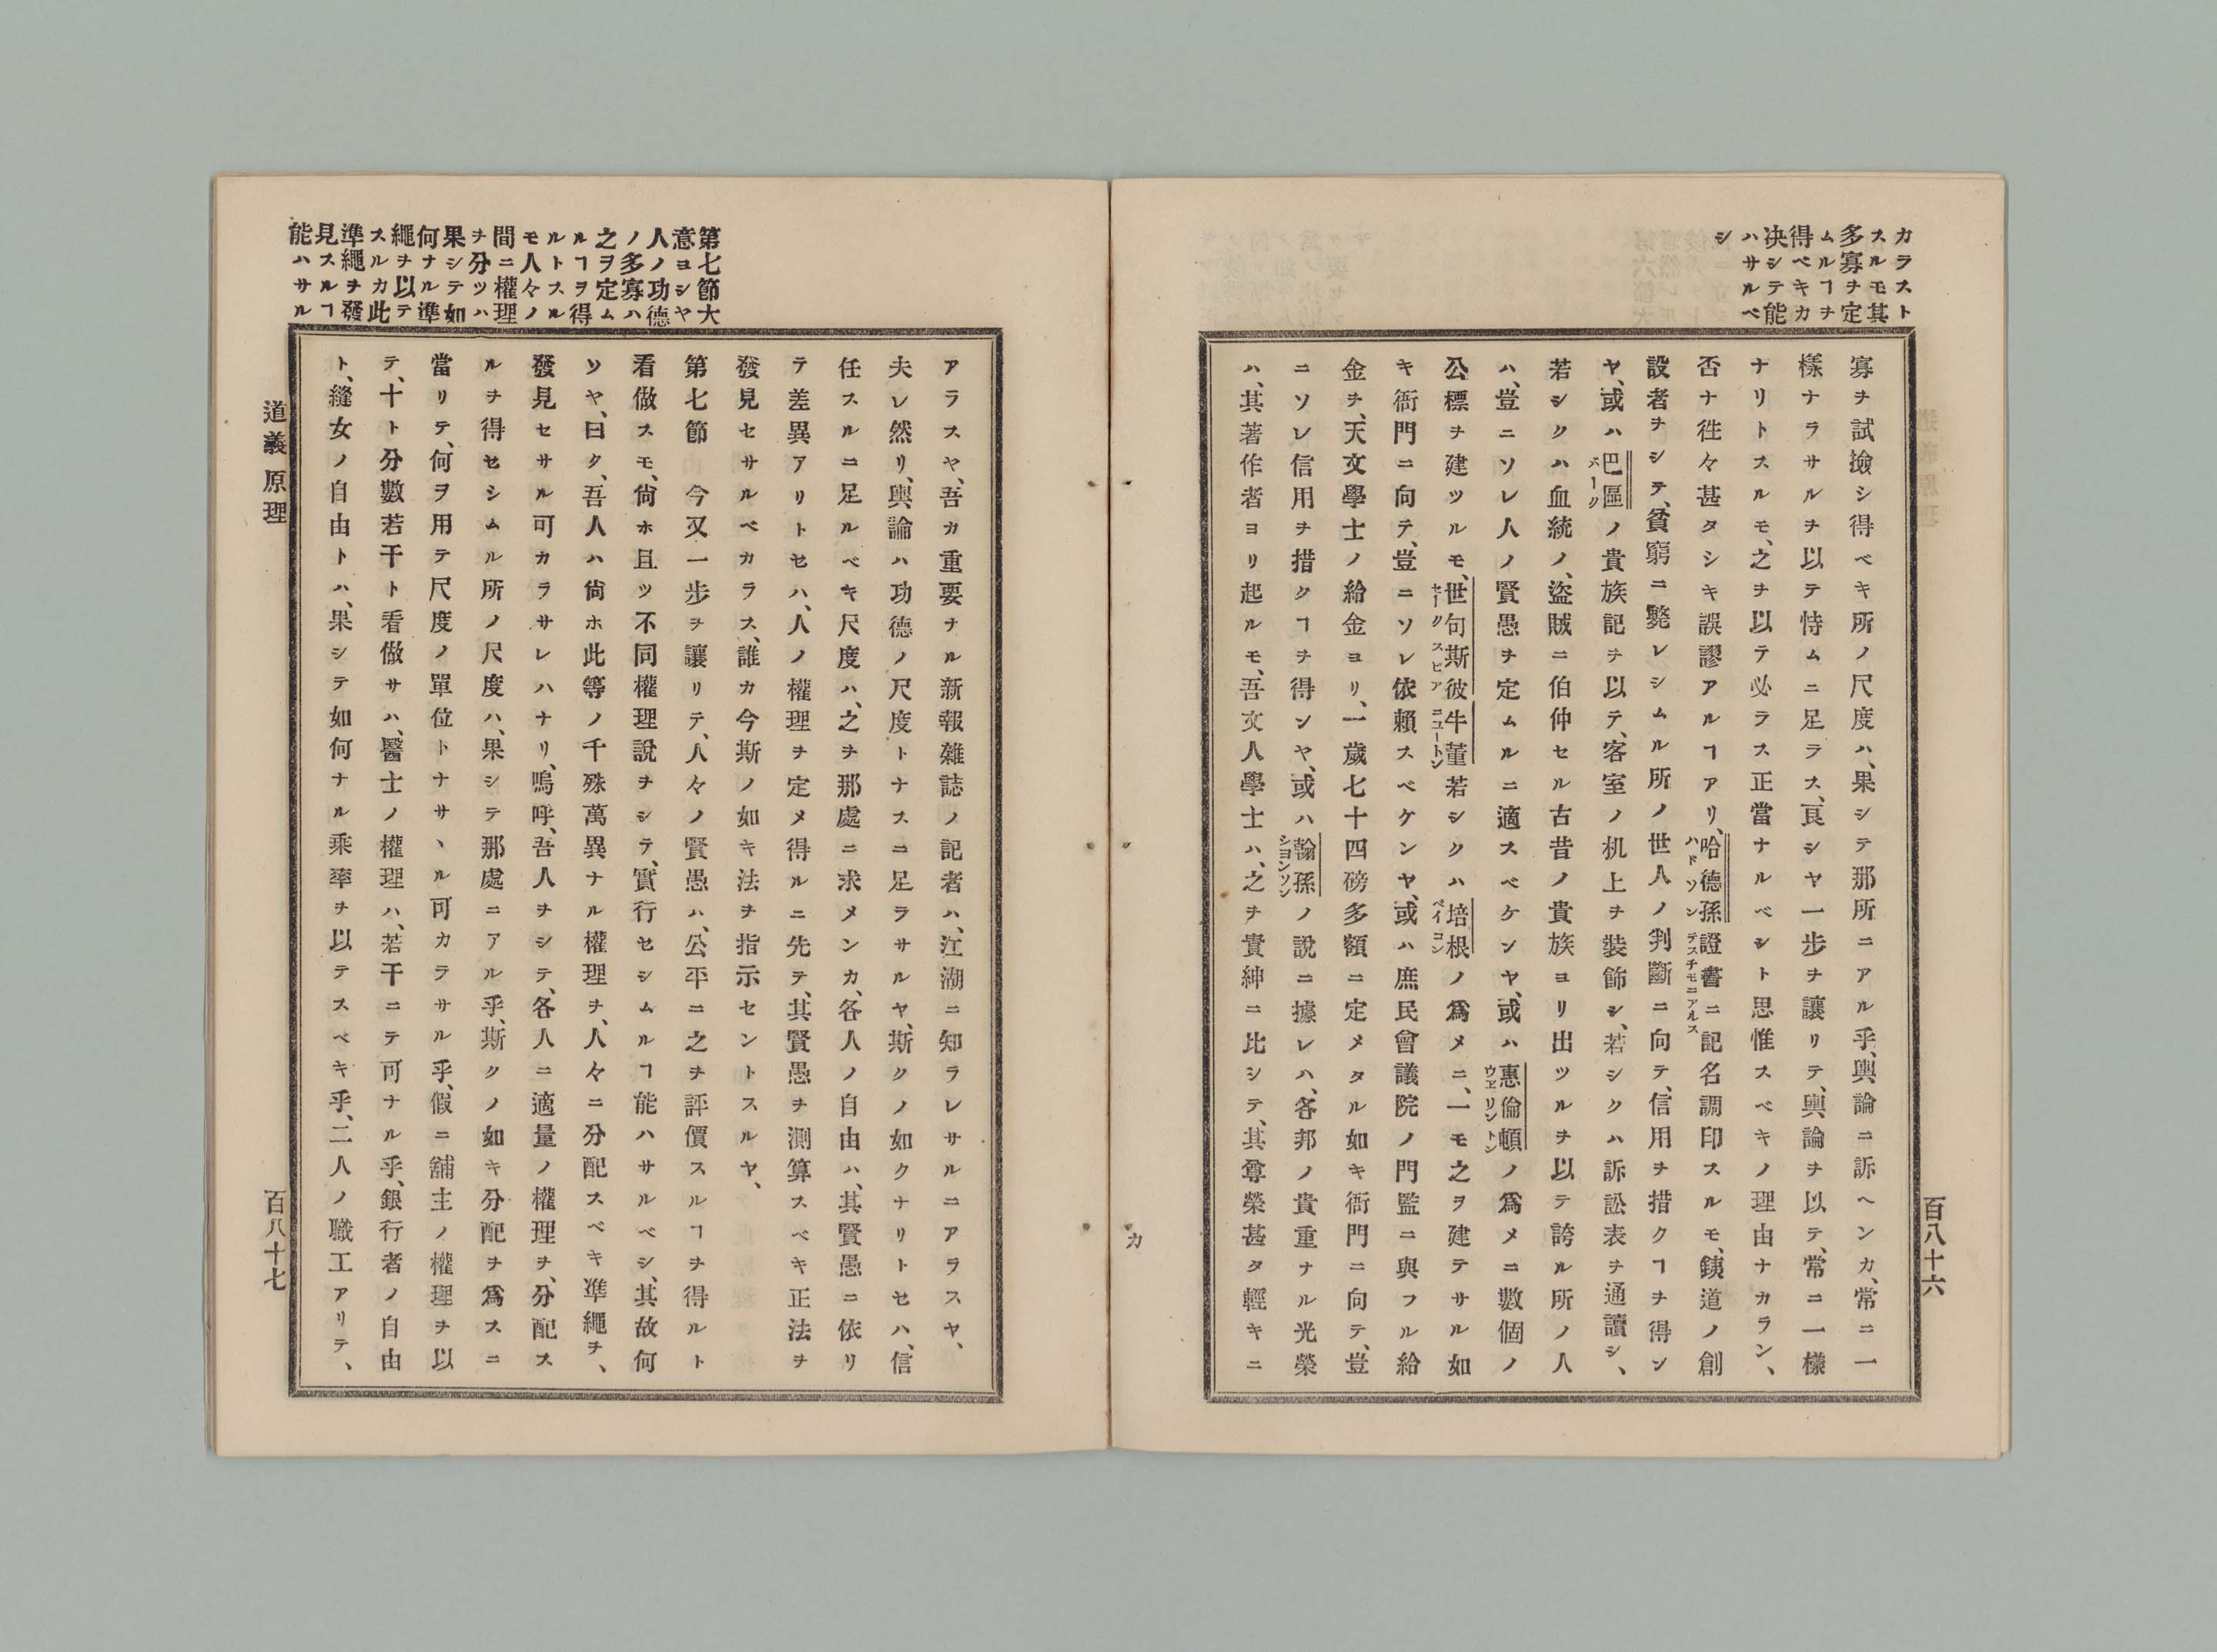 カラスト
スルモ其
多寡ヲ定
ムルヿヲ
得ベキカ
决シテ能
ハサルベ
シ
百八十六
寡ヲ試撿シ得ベキ所ノ尺度ハ、果シテ那所ニアル乎、輿論ニ訴ヘンカ、常ニ一
樣ナラサルヲ以テ恃ムニ足ラス、亰シヤ一步ヲ讓リテ、輿論ヲ以テ、常ニ一樣
ナリトスルモ、之ヲ以テ必ラス正當ナルベシト思惟スベキノ理由ナカラン、
否ナ徃々甚タシキ誤謬アルヿアリ、哈德孫證書ニ記名調印スルモ、銕道ノ創
ハドソン
テスチモニアルス
設者ヲシテ、貧窮ニ斃レシムル所ノ世人ノ判斷ニ向テ、信用ヲ措クヿヲ得ン
ヤ、或ハ巴區ノ貴族記ヲ以テ、客室ノ机上ヲ裝飾シ、若シクハ訴訟表ヲ通讀シ、
若シクハ血統ノ、盜賊ニ伯仲セル古昔ノ貴族ヨリ出ツルヲ以テ誇ル所ノ人
ハ、豈ニソレ人ノ賢愚ヲ定ムルニ適スベケンヤ、或ハ惠倫頓ノ爲メニ數個ノ
ウヱリントン
公標ヲ建ツルモ、世句斯彼牛董若シクハ培根ノ爲メニ、一モ之ヲ建テサル如
セークスピア
ニユートン
ベイコン
キ衙門ニ向テ、豈ニソレ依賴スベケンヤ、或ハ庶民會議院ノ門監ニ與フル給
金ヲ、天文學士ノ給金ヨリ、一歲七十四磅多額ニ定メタル如キ衙門ニ向テ、豈
ニソレ信用ヲ措クヿヲ得ンヤ、或ハ翰孫ノ說ニ據レハ、各邦ノ貴重ナル光榮
シヨンソン
ハ、其著作者ヨリ起ルモ、吾文人學士ハ、之ヲ貴紳ニ比シテ、其尊榮甚タ輕キニ
カ
第七節大
意ヨシヤ
人ノ功德
ノ多寡ハ
之ヲ定ム
ルヿヲ得
ルトスル
モ人々ノ
間ニ權理
ヲ分ツハ
果シテ如
何ナル準
繩ヲ以テ
スルカ此
準繩ヲ發
見スルヿ
能ハサル
アラスヤ、吾カ重要ナル新報雜誌ノ記者ハ、江湖ニ知ラレサルニアラスヤ、
夫レ然リ、輿論ハ功德ノ尺度トナスニ足ラサルヤ、斯クノ如クナリトセハ、信
任スルニ足ルベキ尺度ハ、之ヲ那處ニ求メンカ、各人ノ自由ハ、其賢愚ニ依リ
テ差異アリトセハ、人ノ權理ヲ定メ得ルニ先テ、其賢愚ヲ測算スベキ正法ヲ
發見セサルベカラス、誰カ今斯ノ如キ法ヲ指示セントスルヤ、
第七節　今又一步ヲ讓リテ、人々ノ賢愚ハ、公平ニ之ヲ評價スルヿヲ得ルト
看做スモ、尙ホ且ツ不同權理說ヲシテ、實行セシムルヿ能ハサルベシ、其故何
ソヤ、曰ク、吾人ハ尙ホ此等ノ千殊萬異ナル權理ヲ、人々ニ分配スベキ準繩ヲ、
發見セサル可カラサレハナリ、嗚呼、吾人ヲシテ、各人ニ適量ノ權理ヲ、分配ス
ルヲ得セシムル所ノ尺度ハ、果シテ那處ニアル乎、斯クノ如キ分配ヲ爲スニ
當リテ、何ヲ用テ尺度ノ單位トナサヽル可カラサル乎、假ニ舖主ノ權理ヲ以
テ、十ト分數若干ト看做サハ、醫士ノ權理ハ、若干ニテ可ナル乎、銀行者ノ自由
ト、縫女ノ自由トハ、果シテ如何ナル乘率ヲ以テスベキ乎、二人ノ職工アリテ、
道義原理
百八十七